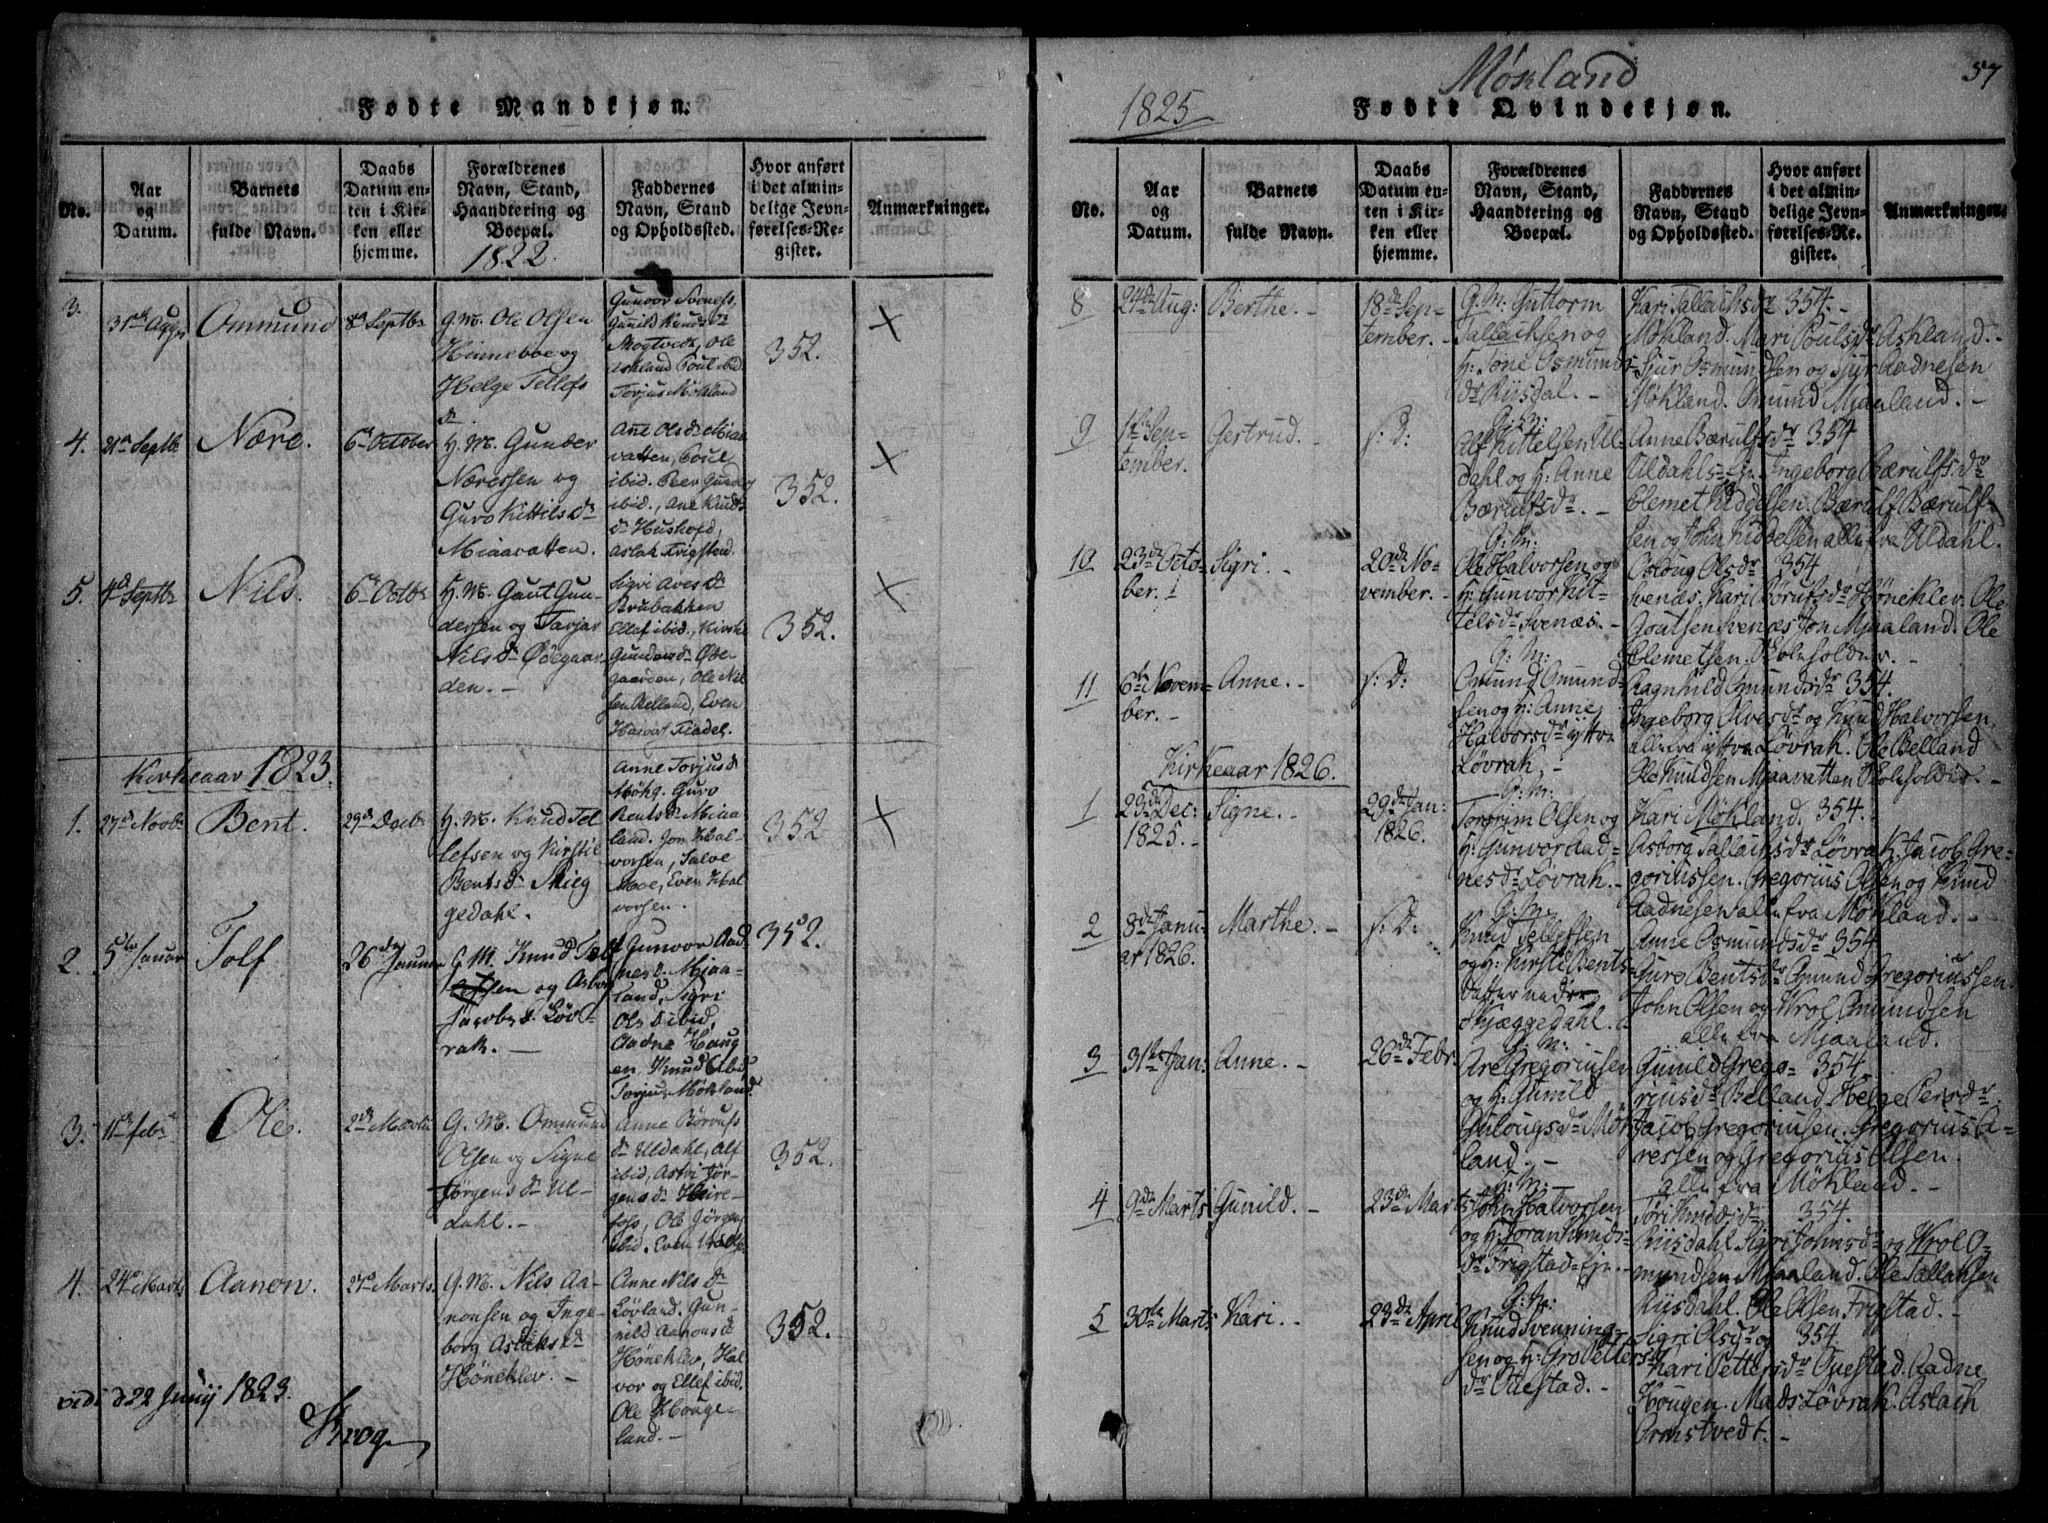 Fødte Mandkjøn.
No.
Aar
og
Datum.
Barnets
fulde Navn.
Daabs
Datum en-
ten i Kir-
ken eller
hjemme.
Forældrenes
Navn, Stand,
Haandtering og
Boepæl.
1822.
Faddernes
Navn, Stand
og Opholdssted.
Hvor anført
i det almin-
delige Jevn-
førelses-Re-
gister.
Anmærkninger.
3.
Ommund
8de Septbr
G. M. Ole Olsen
Hinneboe og
Helge Tellefs
dr
Gunvor
Gunild Knudsdr
Skogtvedt, Ole
Askland Poul ibid
Torjus Møkland
352.
X
4.
21de Septbr
Nære.
6te October
G. M. Gunder
Næresen og
Guro Kittilsdr
Miaavatten.
Ane Olsdr Miaa
vatten, Poul
ibid. Peer
ibid., Ane Knuds
dr Hushofd,
Aslak Frigsted.
352.
X
5.
Septbr
Nils.
6te Octbr
G. M. Gaut Gun
dersen og Tarjer
Nilsdr Ødegaar
den. -
Sigri Avesdr
Brubakken
Ellef ibid., Kirsti
Gundersdr Øde-
gaarden, Ole Nil
sen Relland, Even
352.
X
Kirkeaar 1823.
1.
27de Novbr
Bent.
29de Decbr
G. M. Knud Tel
lefsen og Kirsti
Bentsdr Skieg
gedahl.
Anne Torjusdr
Guro
Bentsdr Miaa
land. Jon Hal
vorsen, Salve
Moe, Even Hal
vorsen.
352
X
2.
5te Januar
Tolf
26de Januar
G M. Knud Tol
lefsen og Asbor
Jacobsdr Løv-
rak. -
Gunvor Aad
nesdr Mjaa-
land, Sigri
Olsdr ibid,
Aadne Haug
en. Knud ibid,
Torjus Møkland
352.
3.
11te Febr
Ole.
2den Marts
G. M. Ommund
Olsen og Signe
Jørgensdr Ul-
dahl. -
Anne Børufs
dr Uldahl, Alf
ibid, Astri Jør
gensdr Heire-
foss, Ole Jørgens
ibid. Even
352.
4.
24de Marts
Aanon.
27de Marts
G. M. Nils Aa-
nonsen og Inge-
borg Aslaksdr
Hønekløv. -
Anne Nilsdr
Løvland. Gun-
nild Aanonsdr
Høneklev, Hal
vor og Ellef ibid.
Ole Houge-
land. -
352.
vidi d 22 Junij 1823.
Krog
57
Møkland
1825
Fødte Qvindekjøn.
No.
Aar
og
Datum.
Barnets
fulde Navn.
Daabs
Datum en-
ten i Kir-
ken eller
hjemme.
Forældrenes
Navn, Stand,
Haandtering og
Boepæl.
Faddernes
Navn, Stand
og Opholdssted.
Hvor anført
i det almin-
delige Jevn-
førelses-Re-
gister.
Anmærkninger.
8
24de Aug:
Berthe. -
18de Sep-
tember. -
G. M: Guttorm
Tallachsen og
H: Tone Osmunds
dr Riisdal. -
Kari Tallachsdr 354.
Møkland. Mari Poulsdr Askland. -
Sjur Osmundsen og Sjur Aadnesen
Møkland. Omund Mjaaland. -
9
1te Sep-
tember.
Gertrud. -
s: d:
G: M:
Alf Kittelsen Ul-
dahl og H: Anne
Bærulfsdr. -
Anne Bærulfsdr 354
Uldahls-eje. Ingeborg Bærulfsdr
Clemet Kiddelsen. Bærulf Bærulf-
sen og John Kiddelsen alle fra Uldahl.
10
23de Octo-
ber. 1
Sigri. -
20de No-
vember. -
G: M:
Ole Halvorsen og
H: Gunvor Kit-
telsdr Svenæs. -
Oslaug Olsdr 354
Svenæs. Kari Børufsdr Høneklev. Ole
Goutsen Svenæs Jon Mjaaland. Ole
Clemetsen. Skoleholder. -
11
6te Novem-
ber. -
Anne. -
s: d:
G: M:
Omund Omund-
sen og H: Anne
Halvorsdr yttre
Løvrak. -
Ragnhild Omundsdr 354.
Ingeborg Olvesdr og Knud Halvorsen
alle fra yttre Løvrak. Ole Belland
Ole Knudsen Mjaavatten Skoleholder. -
Kirkeaar 1826.
1
23de Dec:
1825. -
Signe. -
29de Jan:
1826.
G: M:
Torgrim Olsen og
H: Gunvor Aad-
nesdr Løvrak. -
Kari Møkland. 354.
Asborg Tallachsdr Løvrak. Jacob Gre-
goriussen. Gregorius Olsen og Knud
Aadnesen alle fra Møkland. -
2
8de Janu-
ar 1826.
Marthe. -
s: D:
G: M:
Knud Tellefsen
og H: Kirsti Bents-
datter nedre
Skjæggedahl.
Anne Osmundsdr 354
Guro Bentsdr Omund Gregoriussen.
John Olsen og Wrol Omundsen
alle fra Mjaaland.
3
31te Jan:
Anne. -
26de Febr
G: M:
Are Gregoriusen
og H: Gunild
Gulougsdr Møk
land. -
Gunild Grego- 354.
riusdr Belland. Helge Persdr.
Jacob Gregoriusen. Gregorius A-
resen og Gregorius Olsen
alle fra Møkland. -
4
9de Marts
Gunild. -
23de Marts
G: M:
John Halvorsen
og H: Joran Knuds-
dr Frigstad-Eje. -
Tori Knudsdr 354.
Riisdahl. Sigri Johnsdr og Wrol O-
mundsen Mjaaland. Ole Tallaksen
Riisdahl. Ole Olsen Frigstad. -
5
30de Marts
Kari. -
23de April
G: M:
Knud Svenning-
sen og H: Gro Petters
dr Ouestad. -
Sigri Olsdr og 354.
Kari Pettersdr Ouestad. Aadne
Hougen. Mads Løvrak. Aslach
Ormstvedt. -